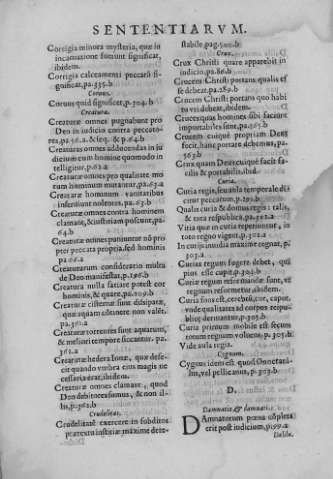 SENTENTIARVM.
Corrigia minora mysteria, quæ in
incarnatione fuerunt significat,
ibidem.
Corrigia calceamenti peccatū si-
gnificat, pa.335.b
Coruus.
Coruus quid significet, p.304.b
Creatura.
Creaturæ omnes pugnabunt pro
Deo in iudicio contra peccato-
res, pa.56.a. & seq. & p.64.b
Creaturas omnes adducendas in iu
dicium cum homine quomodo in
telligitur, p.63.a
Creaturæ omnes pro qualitate mo
rum hominum mutantur, pa.63.a
Creaturæ hominum vanitatibus
inseruiunt nolentes, p.63.b
Creaturæ omnes contra hominem
clamant, & iustitiam poscunt, pa-
64.b
Creaturæ omnes puniuntur nō pro
pter peccata propria, sed hominis
pa.66.a
Creaturarum consideratio multa
de Deo manifestat, p.196.b
Creatura nulla satiare potest cor
hominis, & quare, pa.209.b
Creaturæ cisternæ sunt dissipatæ,
quæ aquam cōtinere non valēt.
pa.301.a
Creaturæ torrentes sunt aquarum,
& meliori tempore siccantur. pa.
361.a
Creaturæ hedera Ionæ, quæ defe-
cit quando vmbra eius magis ne
cessaria erat, ibidem.
Creaturæ omnes clamant, quod
Deo debitores sumus, & non il-
lis, p.362.b
Crudelitas.
Crudelitas exercere in subditos
prætextu iustitiæ maxime dete-
stabile, pag.500.b
Crux.
Crux Christi quare apparebit in
iudicio, pa.86.b
Crucem Christi portans qualis es
se debeat, p.289.b
Crucem Christi portans quo habi
tu vti debeat, ibidem.
Cruces quas homines sibi faciunt
importabiles sunt, p.363.b
Crucem cuique propriam Deus
fecit, hanc portare debemus, pa-
363.b
Crux quam Deus cuique facit fa-
cilis & portabilis, ibid.
Curia.
Curia regis, seu aula temporale di
citur peccatum, p.192.b
Qualis curia & domus regis: talis,
& tota respublica, pa.302.a
Vitia quæ in curia reperiuntur, in
toto regno vigent, p.302.a
In curijs inuidia maxime regnat, p.
303.a
Curias regum fugere debet, qui
pius esse cupit, p.303.b
Curiæ regum reformandæ sunt, ve
regnum reformetur, ibidem.
Curia fons est, cerebrū, cor, caput,
vnde qualitates ad corpus reipu-
blicę deriuantur, p.303.b
Curia primum mobile est secun
totum regnum voluens, p.303.b
Vide aula regis.
Cygnus.
Cygnus idem est quod Onocrota-
lus, vel pellicanus, p.303.b
D.
Damnatio & damnati.
Damnatorum pœna cōpleta
erit post iudicium, p.99.a
Dæsde.